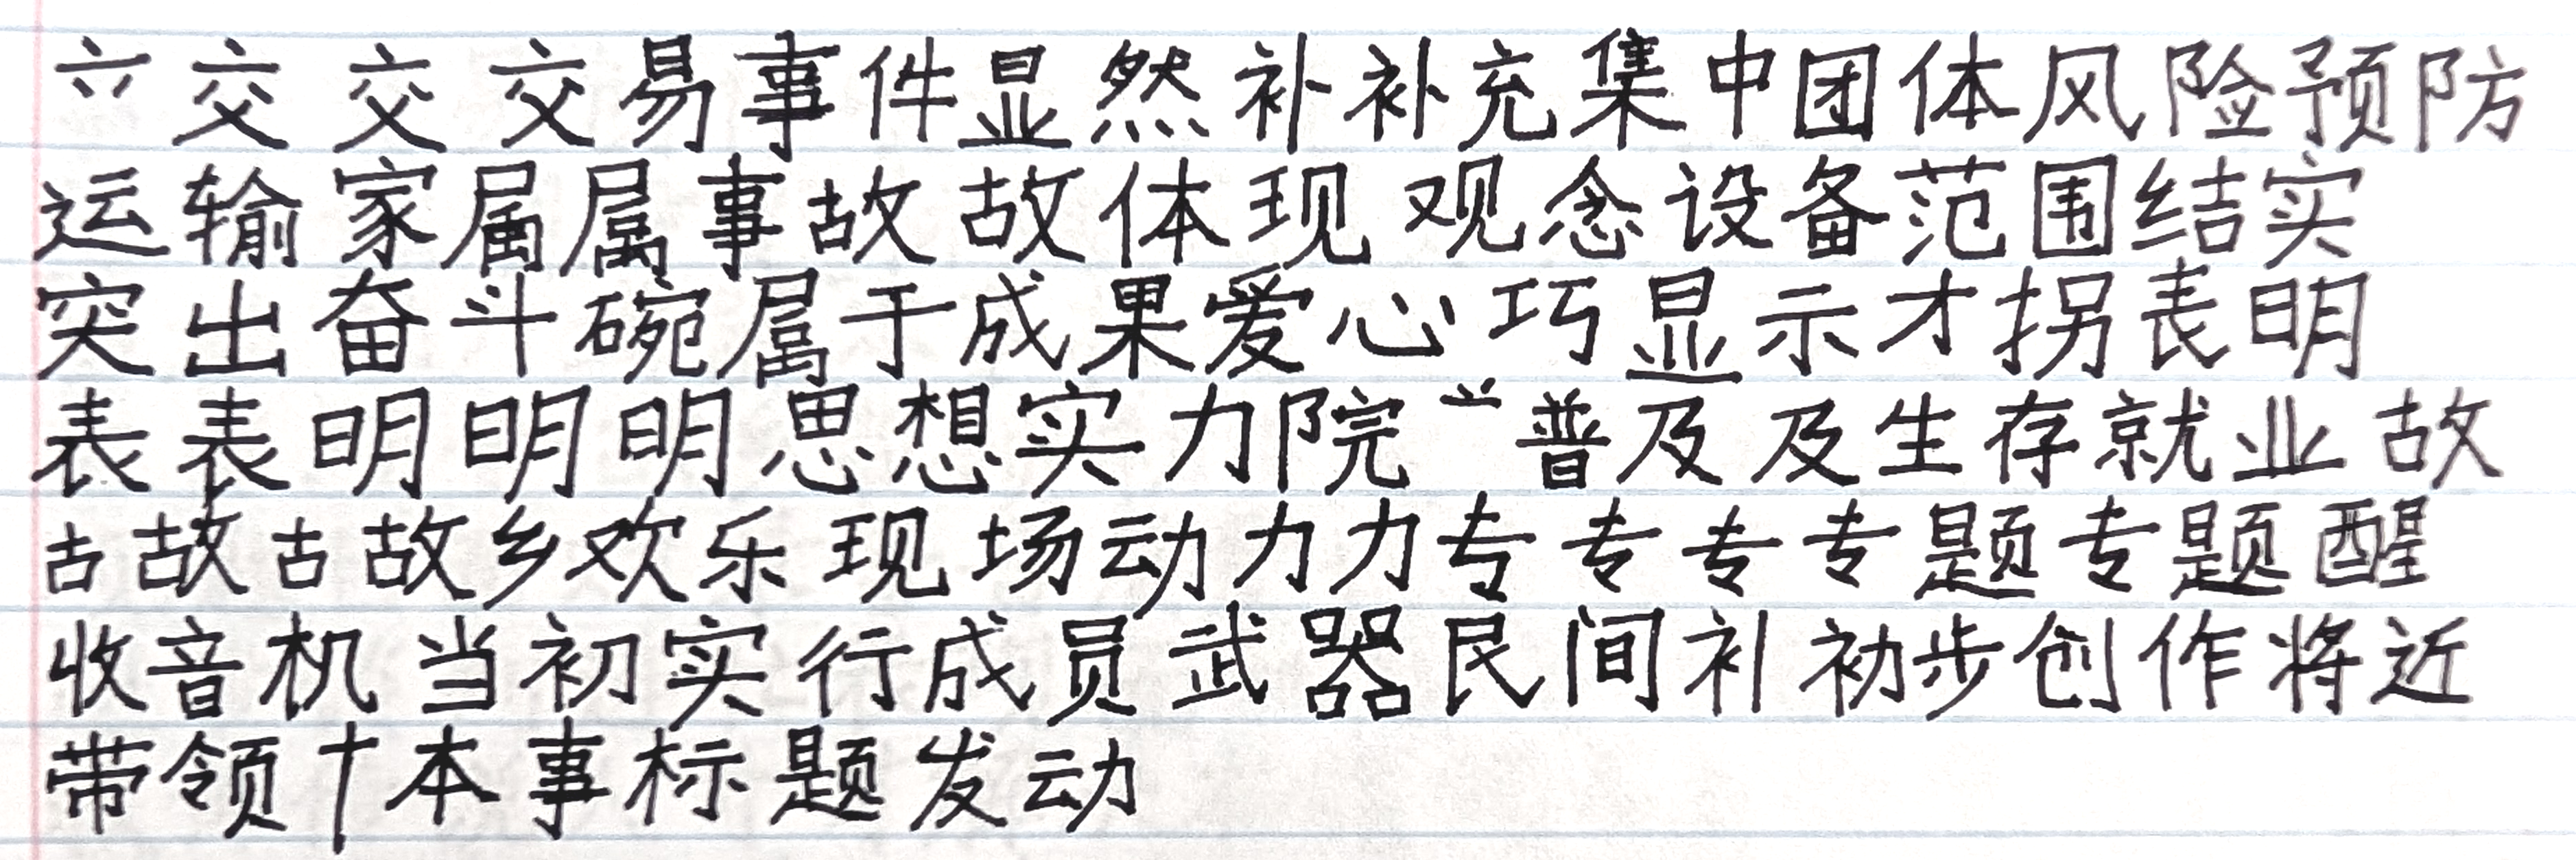 交交交易事件显然补补充集中团体风险预防
运输家属属事故故体现观念设备范围结实
突出奋斗碗属于成果爱心巧显示才拐表明
表表明明明思想实力院普及及生存就业故
古故古故乡欢乐现场动力力专专专专题专题醒
收音机当初实行成员武器民间补初步创作将近
带领十本事标题发动